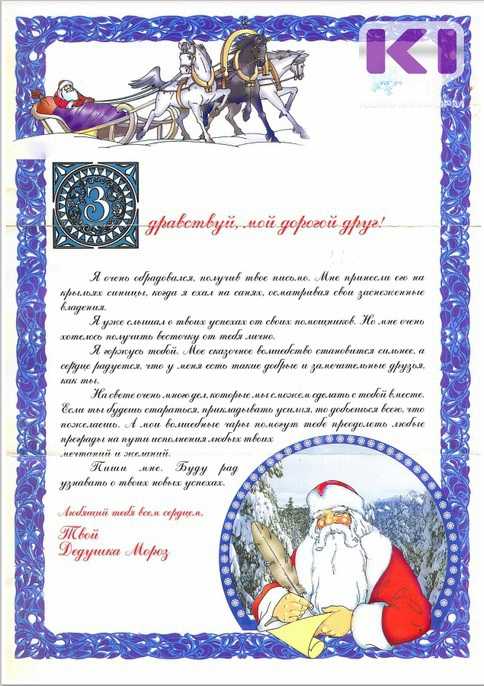 KI
Здравствуй, мой дорогой друг!
Я очень обрадовался, получив твое письмо. Мне принесли его на
крыльях синицы, когда я ехал на санях, осматривая свои заснеженные
владения.
Я уже слышал о твоих успехах от своих помощников. Но мне очень
хотелось получить весточку от тебя лично.
Я горжусь тобой. Мое сказочное волшебство становится сильнее, а
сердце радуется, что у меня есть такие добрые и замечательные друзья,
как ты.
На свете очень много дел, которые мы сможем сделать с тобой вместе.
Если ты будешь стараться, прикладывать усилия, то добьешься всего, что
пожелаешь. А мои волшебные чары помогут тебе преодолеть любые
преграды на пути исполнения любых твоих
мечтаний и желаний.
Пиши мне. Буду рад
узнавать о твоих новых успехах.
Любящий тебя всем сердцем,
Твой
Дедушка Мороз